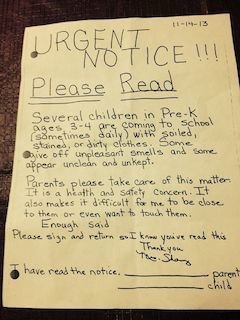 11-14-13
URGENT
NOTICE !!!
Please Read
Several children in Pre-K
ages 3-4 are coming to school
(sometimes daily) with soiled,
stained, or dirty clothes. Some
give off unpleasant smells and some
appear unclean and unkept.
Parents please take care of this matter.
It is a health and safety concern. It
also makes it difficult for me to be close
to them or even want to touch them.
Enough said
Please sign and return so I know you've read this
Thank you
I have read the notice. parent
child